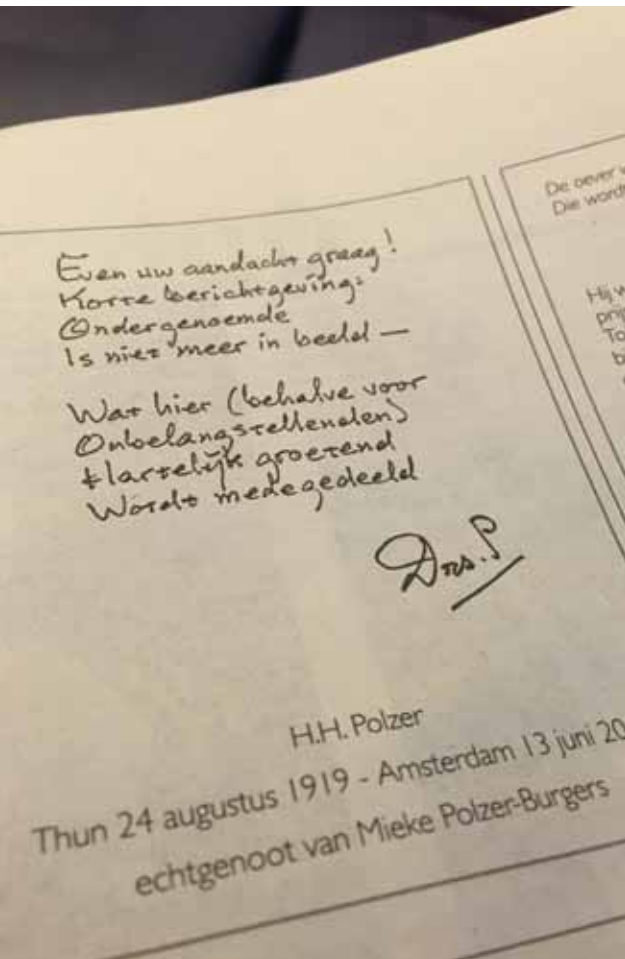 Even uw aandacht graag!
Korte berichtgeving:
Ondergenoemde
Is niet meer in beeld —
Wat hier (behalve voor
Onbelangstellenden)
Hartelijk groetend
Wordt medegedeeld
Drs. P
H.H. Polzer
Thun 24 augustus 1919 - Amsterdam 13 juni 20
echtgenoot van Mieke Polzer-Burgers
De oever
Die word
Hij